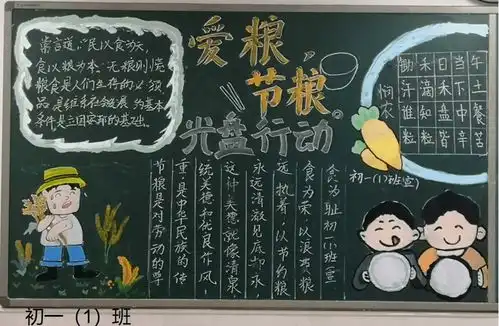 常言道,"民以食为天,
食以粮为本."无粮则慌
粮食是人们生存的必须
品,是维系社会发展的基本
条件是立国安邦的基础.
爱粮,
节粮。
光盘行动
悯农
锄禾日当午
汗滴禾下土
谁知盘中餐
粒粒皆辛苦
初一(1)班宣
节粮是对劳动的尊
重,是中华民族的传
统美德和优良作风,
这种美德就像清泉,
永远清澈见底如永,
远执着,以节约粮
食为荣,以浪费粮
食为耻初一小班宣
初一（1）班